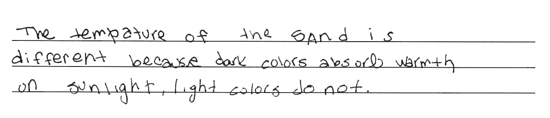 The tempature of the SAnd is
different because dark colors absorb warmth
on sunlight, light colors do not.